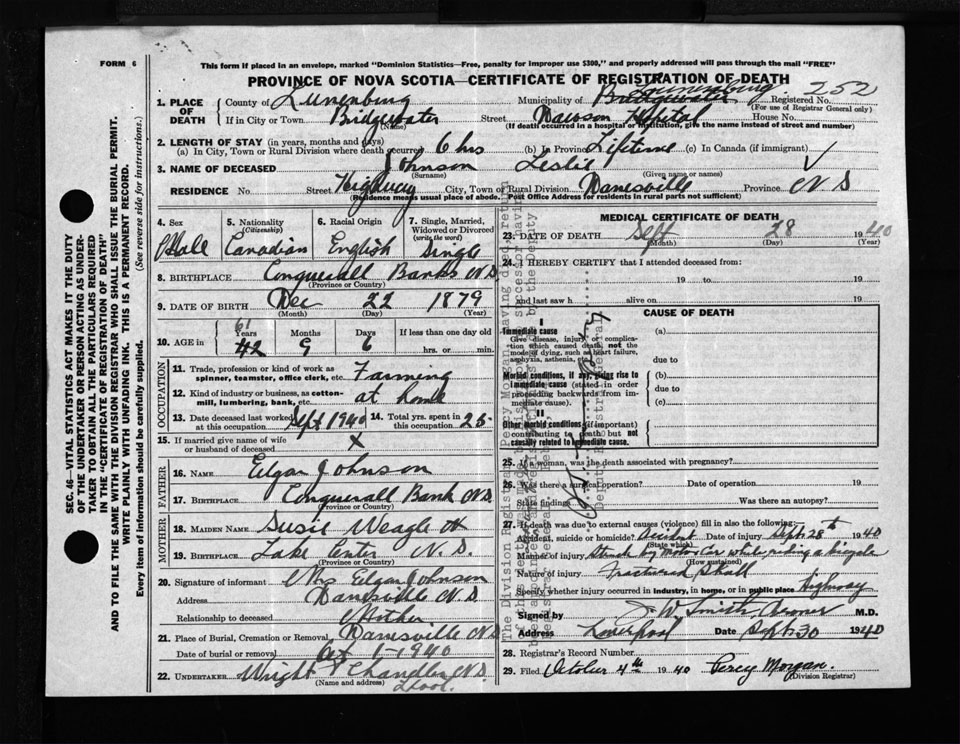 FORM 6
This form if placed in an envelope, marked "Dominion Statistics—Free, penalty for improper use $300," and properly addressed will pass through the mail "FREE"
PROVINCE OF NOVA SCOTIA—CERTIFICATE OF REGISTRATION OF DEATH
252
1. PLACE OF DEATH County of Lunenburg Municipality of Bridgewater Lunenburg Registered No.
(For use of Registrar General only)
If in City or Town Bridgewater Street Dawson Hospital House No.
(Name) (If death occurred in a hospital or institution, give the name instead of street and number)
2. LENGTH OF STAY (in years, months and days)
(a) In City, Town or Rural Division where death occurred 6 hrs (b) In Province Lifetime (c) In Canada (if immigrant)
3. NAME OF DECEASED Johnson Leslie
(Surname) (Given name or names)
RESIDENCE No. Street Highway City, Town or Rural Division Danesville Province N S
(Residence means usual place of abode. Post Office Address for residents in rural parts not sufficient)
4. Sex Male
5. Nationality (Citizenship) Canadian
6. Racial Origin English
7. Single, Married, Widowed or Divorced (write the word) Single
8. BIRTHPLACE Conquerall Banks N S
(Province or Country)
9. DATE OF BIRTH Dec 22 1879
(Month) (Day) (Year)
61
10. AGE in Years 42 Months 9 Days 6 If less than one day old hrs. or min.
OCCUPATION
11. Trade, profession or kind of work as spinner, teamster, office clerk, etc. Farming
12. Kind of industry or business, as cotton-mill, lumbering, bank, etc. at home
13. Date deceased last worked at this occupation Sept 1940 14. Total yrs. spent in this occupation 25
15. If married give name of wife or husband of deceased X
FATHER
16. NAME Edgar Johnson
17. BIRTHPLACE Conquerall Bank N S
(Province or Country)
MOTHER
18. MAIDEN NAME Susie Weagle
19. BIRTHPLACE Lake Center N. S.
(Province or Country)
20. Signature of informant Mrs Edgar Johnson
Address Danesville N S
Relationship to deceased Mother
21. Place of Burial, Cremation or Removal Danesville N S
Date of burial or removal Oct 1 - 1940
22. UNDERTAKER Wright Chandler N S
(Name and address) Lpool.
MEDICAL CERTIFICATE OF DEATH
23. DATE OF DEATH Sept 28 1940
(Month) (Day) (Year)
24. I HEREBY CERTIFY that I attended deceased from:
19 to 19
and last saw h alive on 19
CAUSE OF DEATH
I
Immediate cause
Give disease, injury or complication which caused death, not the mode of dying, such as heart failure, asphyxia, asthenia, etc.
(a)
due to
Morbid conditions, if any, giving rise to immediate cause (stated in order proceeding backwards from immediate cause).
(b)
due to
(c)
II
Other morbid conditions (if important) contributing to death but not causally related to immediate cause.
25. If a woman, was the death associated with pregnancy?
26. Was there a surgical operation? Date of operation 19
State findings Was there an autopsy?
27. If death was due to external causes (violence) fill in also the following:
Accident, suicide or homicide? Accident Date of injury Sept. 28th 1940
(State which)
Manner of injury Struck by Motor Car while riding a bicycle
(How sustained)
Nature of injury Fractured Skull
Specify whether injury occurred in industry, in home, or in public place Highway
Signed by J. W. Smith Coroner M.D.
Address Liverpool Date Sept 30 1940
28. Registrar's Record Number
29. Filed October 4th 1940 Percy Morgan.
(Division Registrar)
SEC. 46—VITAL STATISTICS ACT MAKES IT THE DUTY
OF THE UNDERTAKER OR PERSON ACTING AS UNDER-
TAKER TO OBTAIN ALL THE PARTICULARS REQUIRED
IN THE "CERTIFICATE OF REGISTRATION OF DEATH"
AND TO FILE THE SAME WITH THE DIVISION REGISTRAR WHO SHALL ISSUE THE BURIAL PERMIT.
WRITE PLAINLY WITH UNFADING INK. THIS IS A PERMANENT RECORD.
Every item of information should be carefully supplied. (See reverse side for instructions.)
The Division Registrar, Percy Morgan, having
Deputy Registrar General